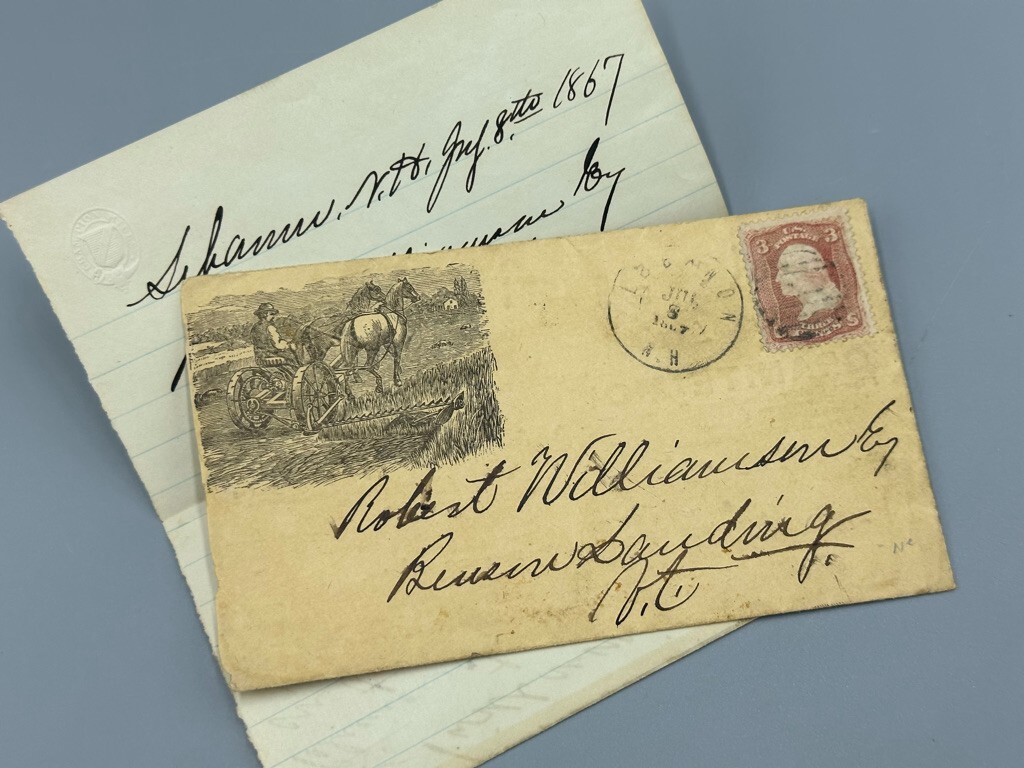 Lebanon, N.H. July. 8th 1867
Williamson Esq
LEBANON
JUL
8
1867
N.H
3 3
U.S.
POSTAGE
Robert Williamson Esq
Benson Landing.
Vt.